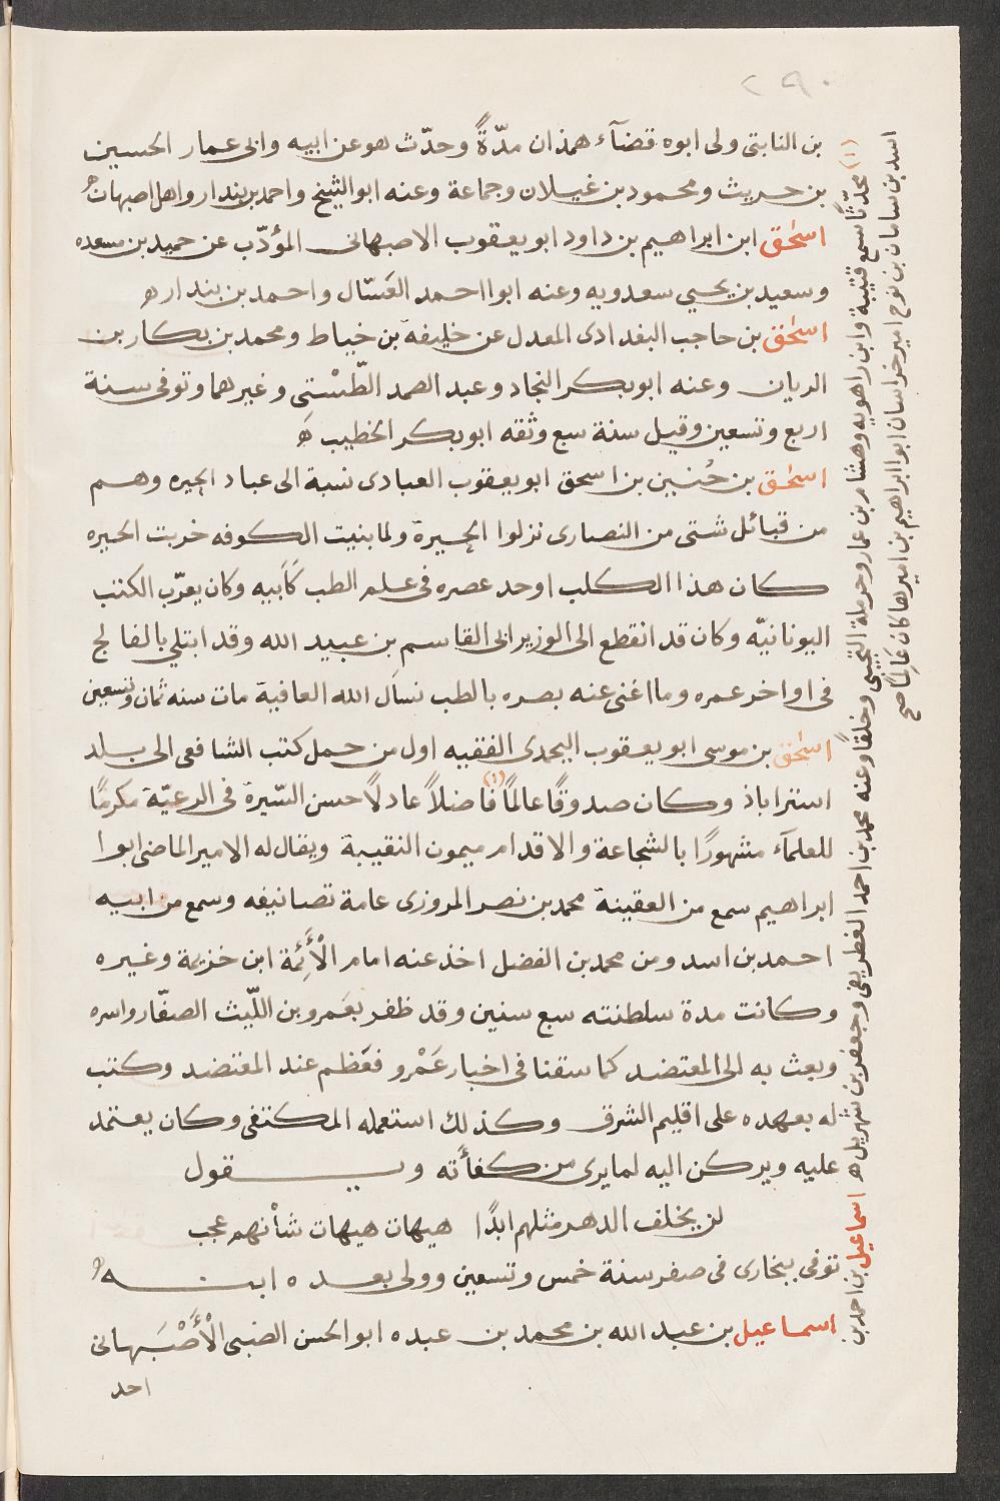 ٢٩٠
بن النابتى ولى ابوه قضآء همذان مدّةً وحدّث هو عن ابيه وابى عمار الحسين
بن حريث ومحمود بن غيلان وجماعة وعنه ابو الشيخ واحمد بن بندار واهل اصبهان ه
اسحٰق ابن ابراهيم بن داود ابو يعقوب الاصبهانى المؤدّب عن حميد بن مسعده
وسعيد بن يحيى سعدويه وعنه ابو احمد العَسّال واحمد بن بندار ه
اسحٰق بن حاجب البغدادى المعدل عن خليفة بن خياط ومحمد بن بكار بن
الريان وعنه ابو بكر النجاد وعبد الصمد الطّسْتى وغيرهما وتوفى سنة
اربع وتسعين وقيل سنة سبع وثقه ابو بكر الخطيب ه
اسحٰق بن حُنَين بن اسحق ابو يعقوب العبادى نسبة الى عباد الحيره وهم
من قبائل شتى من النصارى نزلوا الحيرة ولما بنيت الكوفه خربت الحيره
كان هذا الكلب اوحد عصره فى علم الطب كَاَبيه وكان يعرّب الكتب
اليونانيّه وكان قد انقطع الى الوزير ابى القاسم بن عبيد الله وقد ابتلي بالفالج
فى اواخر عمره وما اغنى عنه بصره بالطب نسأل الله العافية مات سنه ثمان وتسعين
اسحٰق بن موسى ابو يعقوب اليحمدى الفقيه اول من حمل كتب الشافعى الى بلد
استراباذ وكان صدوقًا عالمًا (١) فاضلاً عادلاً حسن السّيرة فى الرعيّة مكرمًا
للعلمآء مشهورًا بالشجاعة والاقدام ميمون النقيبة ويقال له الامير الماضى ابو ا
ابراهيم سمع من العقينة محمد بن نصر المروزى عامة تصانيفه وسمع من ابيه
احمد بن اسد ومن محمد بن الفضل اخذ عنه امام الْأَئِمَّة ابن خزيمة وغيره
وكانت مدة سلطنته سبع سنين وقد ظفر بعَمرو بن اللّيث الصفّار واسره
وبعث به الى المعتضد كما سقنا فى اخبار عَمْرو فعَظم عند المعتضد وكتب
له بعهده على اقليم الشرق وكذلك استعمله المكتفى وكان يعتمد
عليه ويركن اليه لما يرى من كفأته ويقول
لن يخلف الدهر مثلهم ابدًا هيهات هيهات شأنهم عجب
توفى ببخارى فى صفر سنة خمس وتسعين وولى بعده ابنه ه
اسماعيل بن عبد الله بن محمد بن عبده ابو الحسن الضبى الْأَصْبَهانى
احد
(١) محدّثًا سمع قتيبة وابن راهويه وهشام بن عمار وحرملة التجيبى وخلقًا وعنه محمد بن احمد الغطريفى وجعفر بن شهريل ه اسماعيل بن احمد بن
اسد بن سامان بن نوح امير خراسان ابو ابراهيم بن اميرها كان عَالِمًا صح